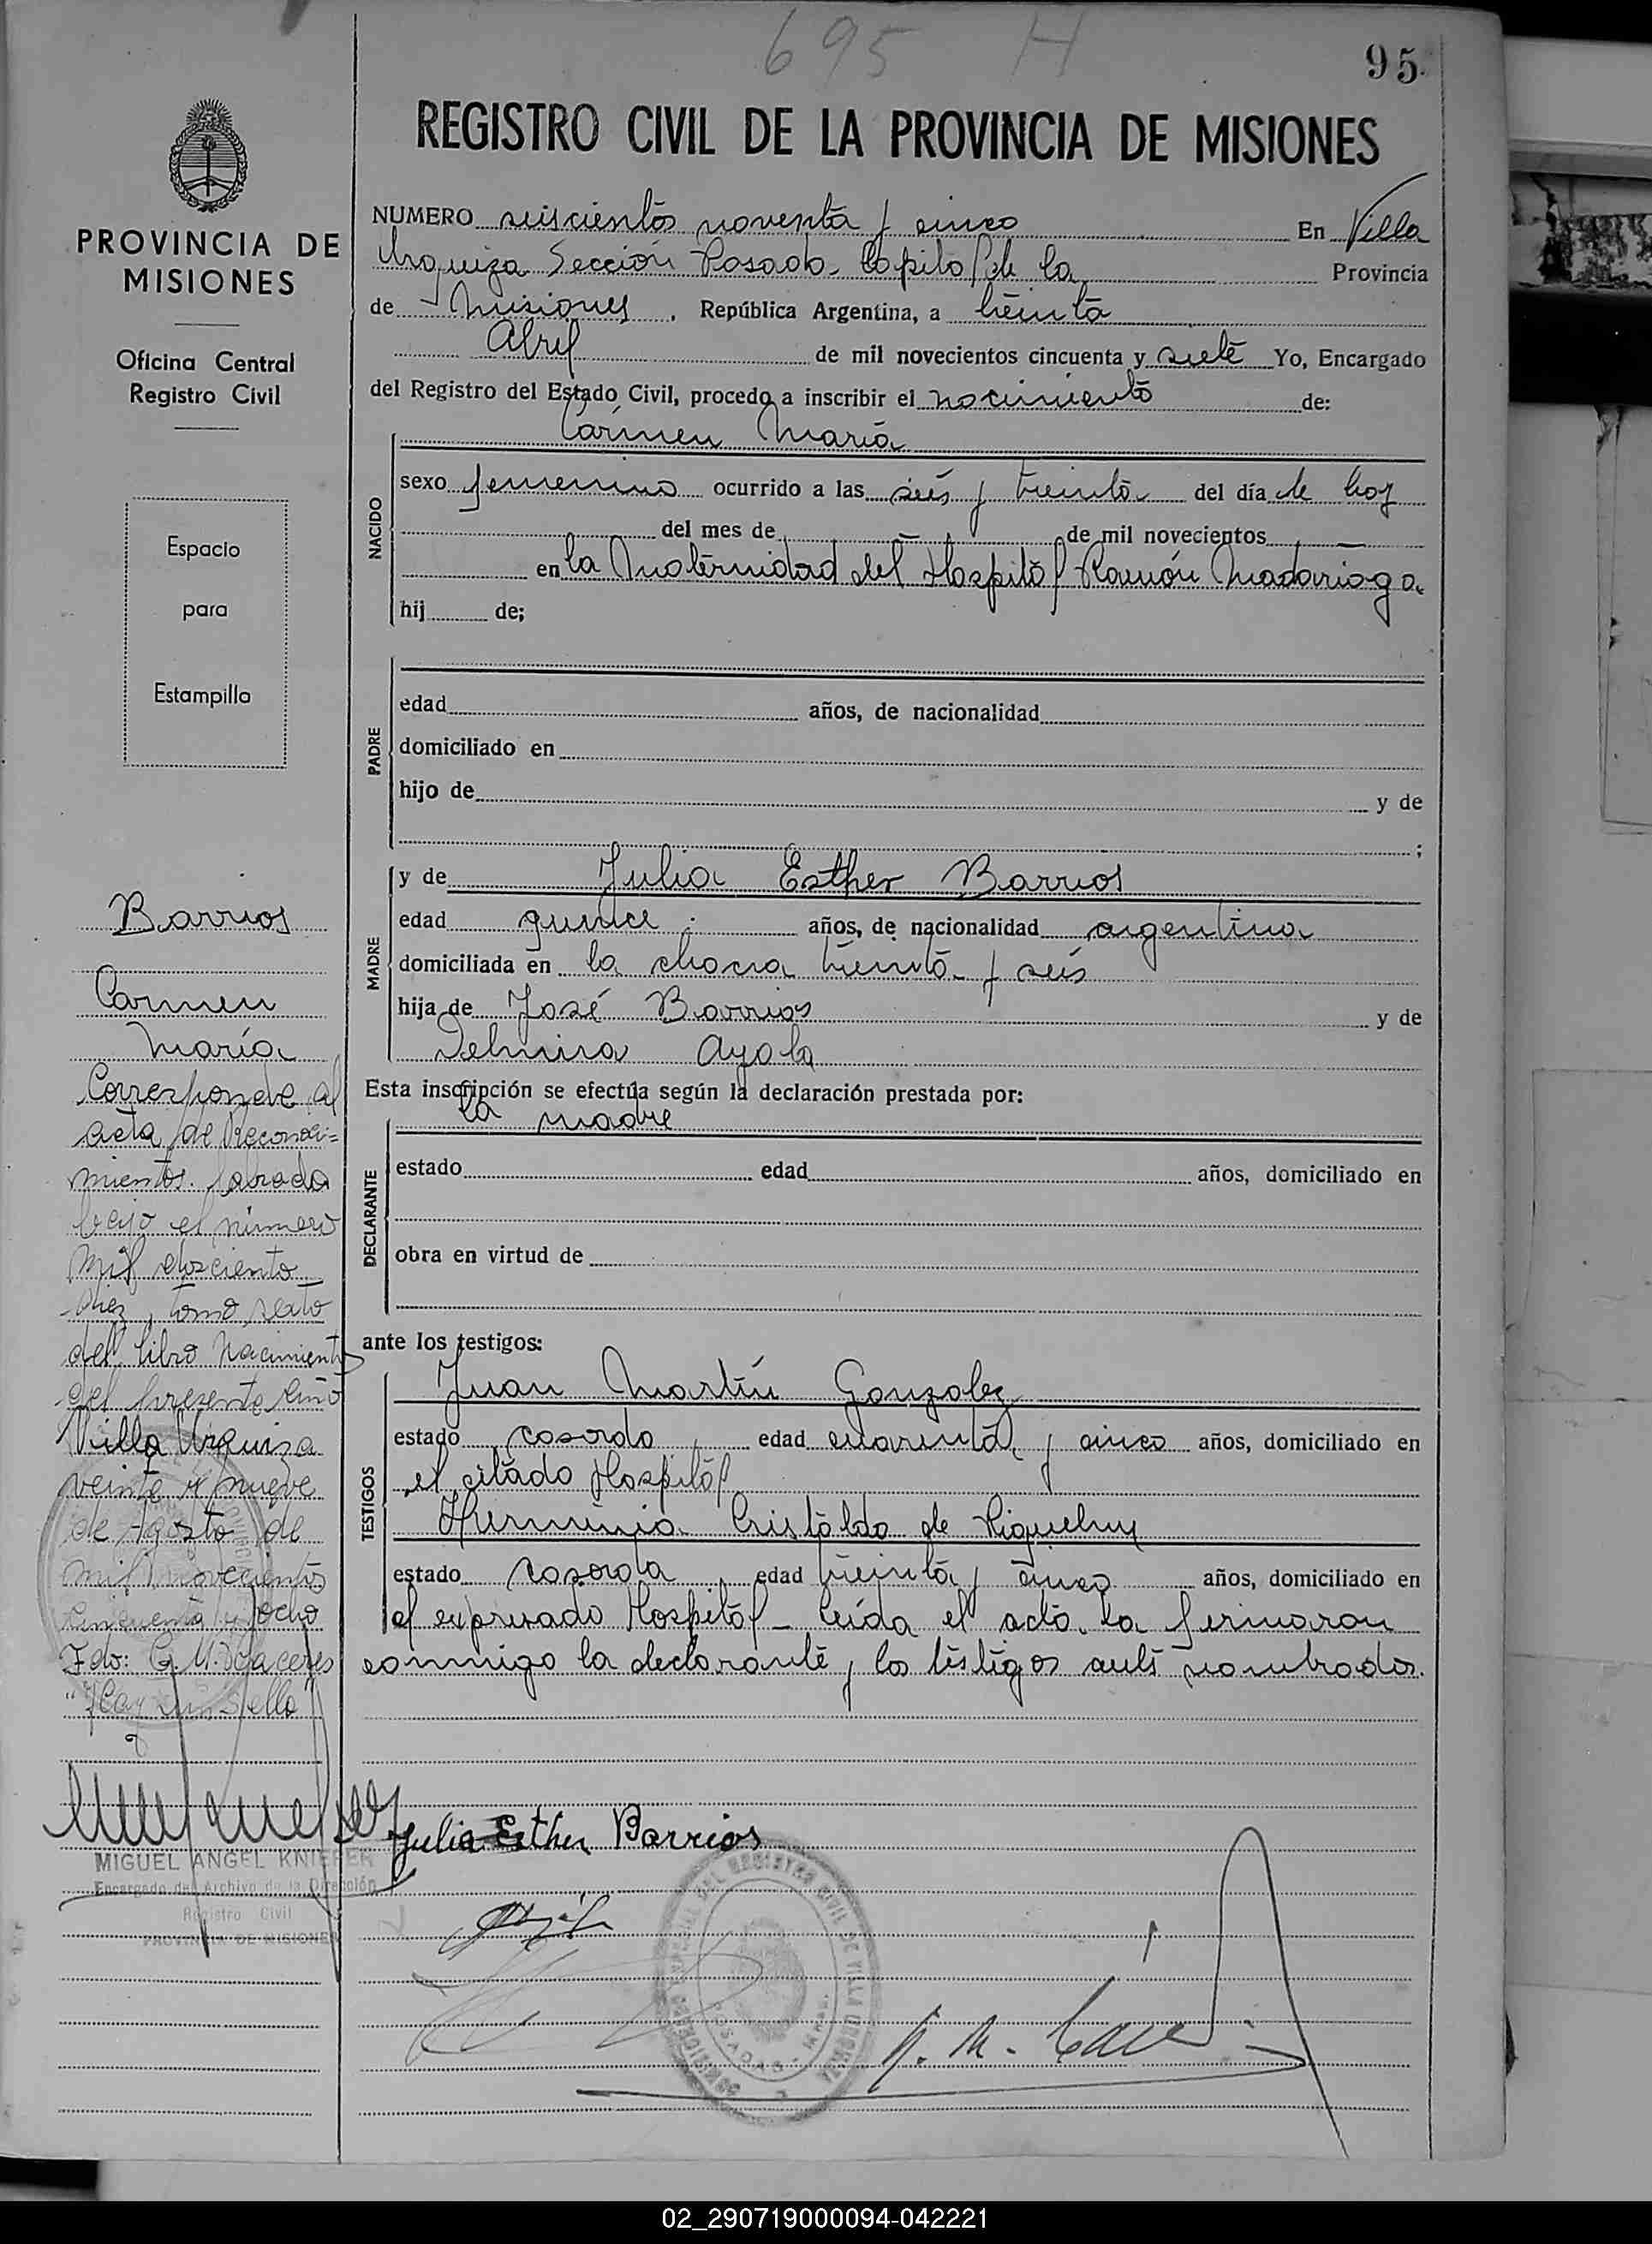 695 H
95
REGISTRO CIVIL DE LA PROVINCIA DE MISIONES
NUMERO seiscientos noventa y cinco En Villa
Urquiza Sección Posadas Capital de la Provincia
de Misiones, República Argentina, a treinta
Abril de mil novecientos cincuenta y siete Yo, Encargado
del Registro del Estado Civil, procedo a inscribir el nacimiento de:
Carmen María
NACIDO
sexo femenino ocurrido a las seis y treinta del día de hoy
del mes de de mil novecientos
en la Maternidad del Hospital Ramón Madariaga.
hij de;
PADRE
edad años, de nacionalidad
domiciliado en
hijo de y de
;
MADRE
y de Julia Esther Barrios
edad quince años, de nacionalidad argentina
domiciliada en la chacra treinta y seis
hija de José Barrios y de
Delmira Ayala
Esta inscripción se efectúa según la declaración prestada por:
la madre
DECLARANTE
estado edad años, domiciliado en
obra en virtud de
ante los testigos:
TESTIGOS
Juan Martín Gonzalez
estado casado edad cuarenta y cinco años, domiciliado en
el citado Hospital
Herminia Cristaldo de
estado casada edad treinta y cinco años, domiciliado en
el expresado Hospital - Leída el acta la firmaron
conmigo la declarante y los testigos ante nombrados.
Julia Esther Barrios
G. M. Caceres
PROVINCIA DE
MISIONES
Oficina Central
Registro Civil
Espacio
para
Estampilla
Barrios
Carmen
María
Corresponde al
acta de Reconoci=
mientos labrada
bajo el número
mil dosciento
diez, tomo sexto
del libro Nacimiento
del presente año
Villa Urquiza
veinte y nueve
de Agosto de
mil novecientos
cincuenta y ocho
Fdo: G. M. Caceres
"Hay un Sello"
MIGUEL ANGEL KNIEPER
Encargado del Archivo de la Dirección
Registro Civil
PROVINCIA DE MISIONES
02_290719000094-042221